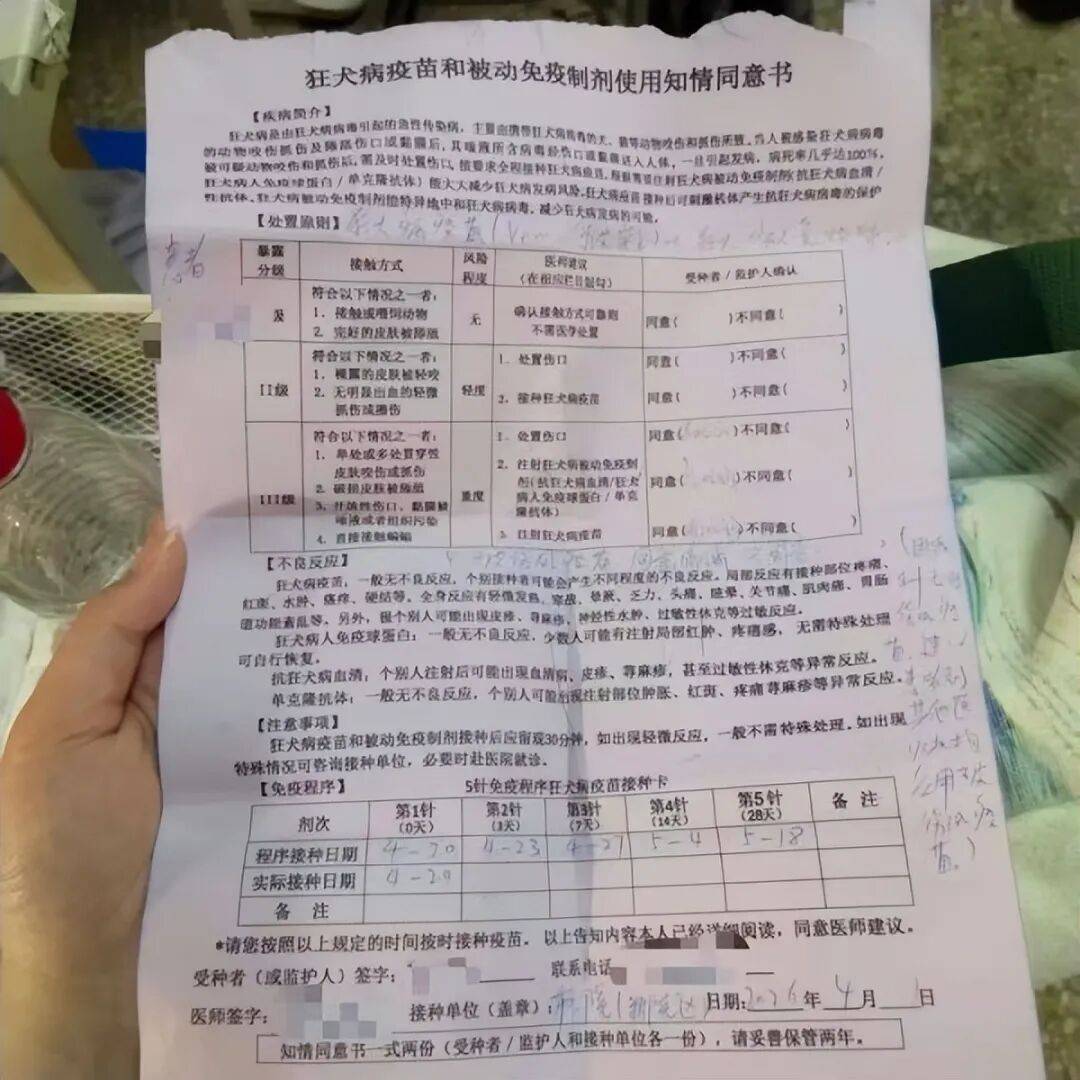 狂犬病疫苗和被动免疫制剂使用知情同意书
【疾病简介】
狂犬病是由狂犬病病毒引起的急性传染病，主要由携带狂犬病病毒的犬、猫等动物咬伤和抓伤所致。当人被感染狂犬病病毒
的动物咬伤抓伤及舔舐伤口或黏膜后，其唾液所含病毒经伤口或黏膜进入人体，一旦引起发病，病死率几乎达100%。
被可疑动物咬伤和抓伤后，需及时处置伤口，按要求全程接种狂犬病疫苗，根据需要注射狂犬病被动免疫制剂(抗狂犬病血清/
狂犬病人免疫球蛋白/单克隆抗体）能大大减少狂犬病发病风险。狂犬病疫苗接种后可刺激机体产生抗狂犬病病毒的保护
性抗体。狂犬病被动免疫制剂能特异地中和狂犬病病毒，减少狂犬病发病的可能。
【处置原则】
患者
暴露分级 接触方式 风险程度 医师建议（在相应栏目划勾） 受种者/监护人确认
级 符合以下情况之一者： 无 确认接触方式可靠则 同意( )不同意( )
1. 接触或喂饲动物 不需医学处置
2. 完好的皮肤被舔舐
II级 符合以下情况之一者： 轻度 1. 处置伤口 同意( )不同意( )
1. 裸露的皮肤被轻咬
2. 无明显出血的轻微 2. 接种狂犬病疫苗 同意( )不同意( )
抓伤或擦伤
III级 符合以下情况之一者： 重度 1. 处置伤口 同意( )不同意( )
1. 单处或多处贯穿性
皮肤咬伤或抓伤 2. 注射狂犬病被动免疫制
2. 破损皮肤被舔舐 剂(抗狂犬病血清/狂犬 同意( )不同意( )
3. 开放性伤口、黏膜被 病人免疫球蛋白/单克
唾液或者组织污染 隆抗体)
4. 直接接触蝙蝠 3. 注射狂犬病疫苗 同意( )不同意( )
【不良反应】
狂犬病疫苗：一般无不良反应，个别接种者可能会产生不同程度的不良反应。局部反应有接种部位疼痛、
红斑、水肿、瘙痒、硬结等。全身反应有轻微发热、寒战、晕厥、乏力、头痛、眩晕、关节痛、肌肉痛、胃肠
道功能紊乱等。另外，很个别人可能出现皮疹、荨麻疹、神经性水肿、过敏性休克等过敏反应。
狂犬病人免疫球蛋白：一般无不良反应，少数人可能有注射局部红肿、疼痛感，无需特殊处理
可自行恢复。
抗狂犬病血清：个别人注射后可能出现血清病、皮疹、荨麻疹，甚至过敏性休克等异常反应。
单克隆抗体：一般无不良反应，个别人可能出现注射部位肿胀、红斑、疼痛荨麻疹等异常反应。
【注意事项】
狂犬病疫苗和被动免疫制剂接种后应留观30分钟，如出现轻微反应，一般不需特殊处理。如出现
特殊情况可咨询接种单位，必要时赴医院就诊。
【免疫程序】 5针免疫程序狂犬病疫苗接种卡
剂次 第1针(0天) 第2针(3天) 第3针(7天) 第4针(14天) 第5针(28天) 备 注
程序接种日期 4-20 4-23 4-27 5-4 5-18
实际接种日期 4-20
备 注
*请您按照以上规定的时间按时接种疫苗。以上告知内容本人已经详细阅读，同意医师建议。
受种者（或监护人）签字： 联系电话
医师签字： 接种单位（盖章）： 日期：2026年4月 日
知情同意书一式两份（受种者/监护人和接种单位各一份），请妥善保管两年。